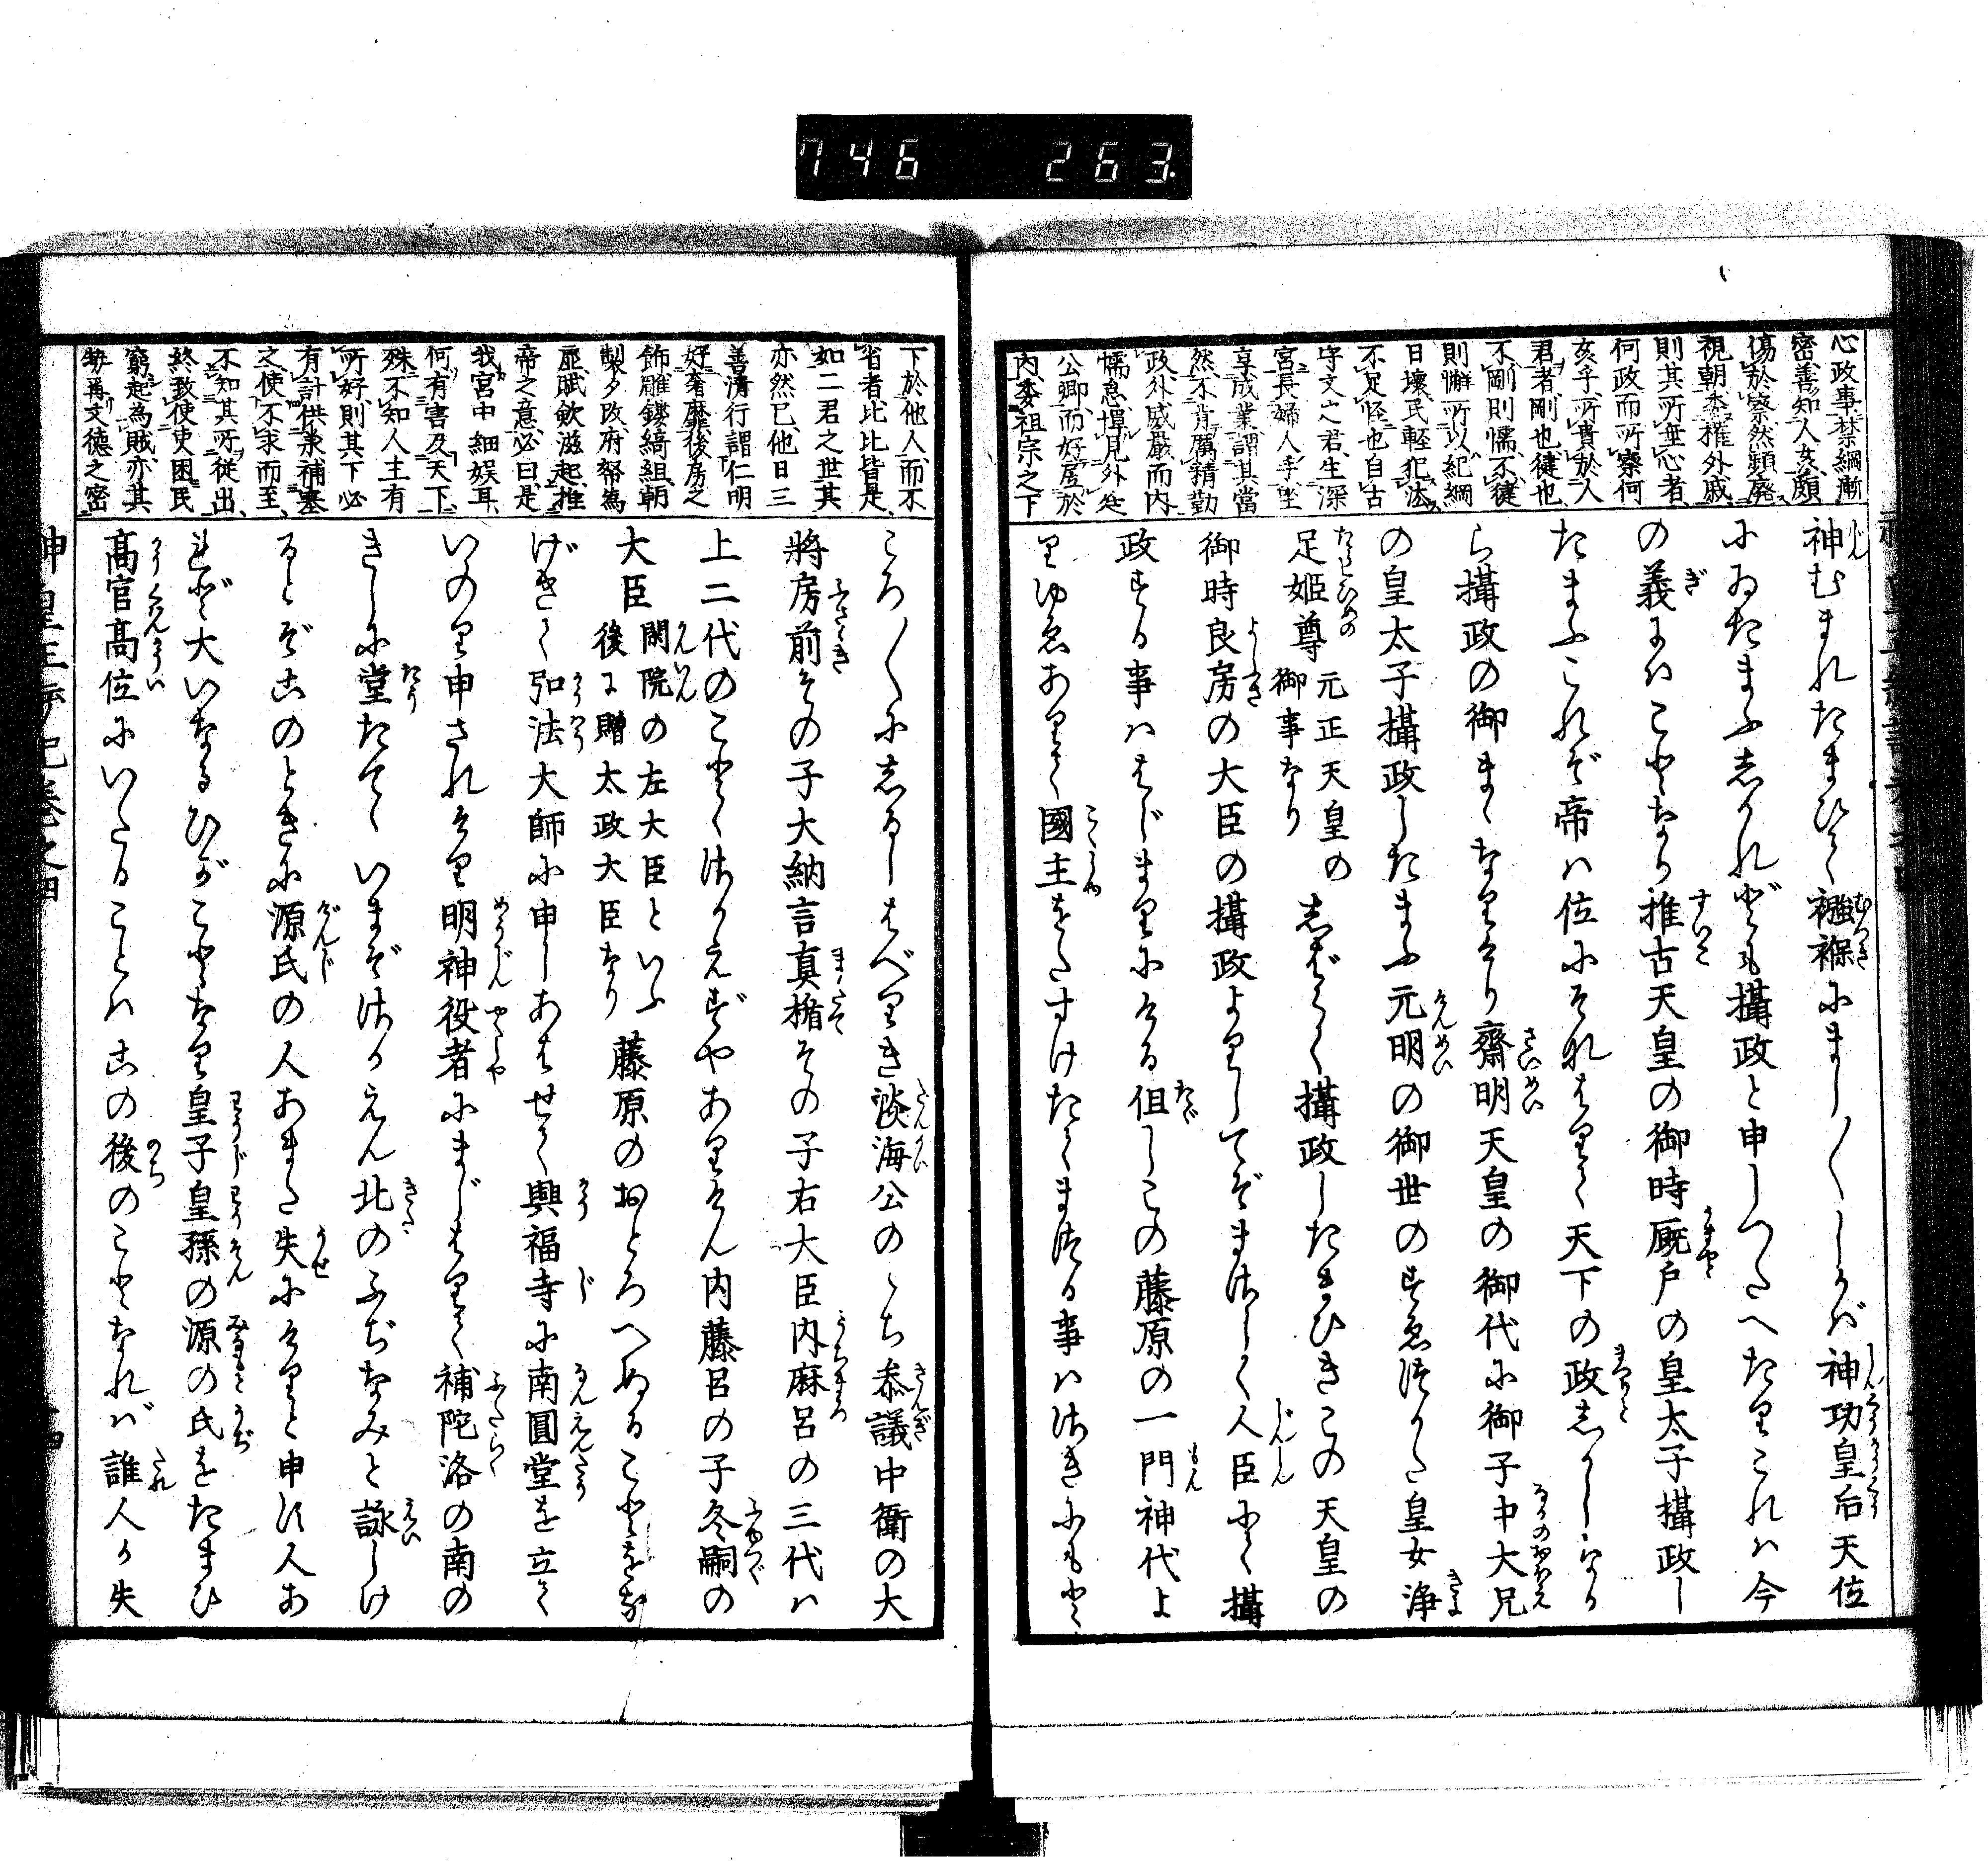 746 263
心政事禁綱漸
密善知人友頗
傷於察然頽廢
視朝委權外戚
則其所無心者
何政而所察何
亥乎所貴於人
君者剛也健也
不剛則懦不健
則懈所以紀綱
日壞民輕犯法
不足怪也自古
守文之君生深
宮長婦人手坐
享成業謂其當
然不肯厲精勤
政外戚嚴而内
懦怠憚見外廷
公卿而好昵於
内委祖宗之下
神むまれたまひて襁褓にまし〱しかバ神功皇后天位
にゐたまふしかれども攝政と申しつたへたりこれハ今
の義にハことなり推古天皇の御時厩戸の皇太子攝政し
たまふこれぞ帝ハ位にそなはりて天下の政しかしなか
ら攝政の御まゝなりけり齋明天皇の御代に御子中大兄
の皇太子攝政したまふ元明の御世のすゑつかた皇女淨
足姫尊元正天皇の御事なりしばらく攝政したまひきこの天皇の
御時良房の大臣の攝政よりしてぞまさしく人臣にて攝
政する事ハはじまりにける但しこの藤原の一門神代よ
りゆゑありて國主をたすけたてまつる事ハさきにもと
下於他人而不
省者比比皆是
如二君之世其
亦然已他日三
善清行謂仁明
好奢靡後房之
飾雕鏤綺組朝
製夕改府帑為
虚賦斂滋起推
帝之意必曰是
我宮中細娯耳
何有害及天下
殊不知人主有
所好則其下必
有計供羕補塞
之使不求而至
不知其所従出
終致使吏困民
窮起為賊亦其
毎再文德之密
ころ〱にしるしはべりき淡海公のゝち叅議中衛の大
將房前その子大納言真楯その子右大臣内麻呂の三代ハ
上二代のことくさかえずやありけん内藤呂の子冬嗣の
大臣閑院の左大臣といふ後に贈太政大臣なり藤原のおとろへぬることをな
げきて弘法大師に申しあはせて興福寺に南圓堂を立て
いのり申されけり明神役者にまじはりて補陀洛の南の
きしに堂たてゝいまぞさかえん北のふぢなみと詠しけ
るとぞこのときに源氏の人あまた失にけりと申す人あ
れど大いなるひがことなり皇子皇孫の源の氏をたまひ
高官高位にいたることハこの後のことなれバ誰人か失
神皇正統記卷之四